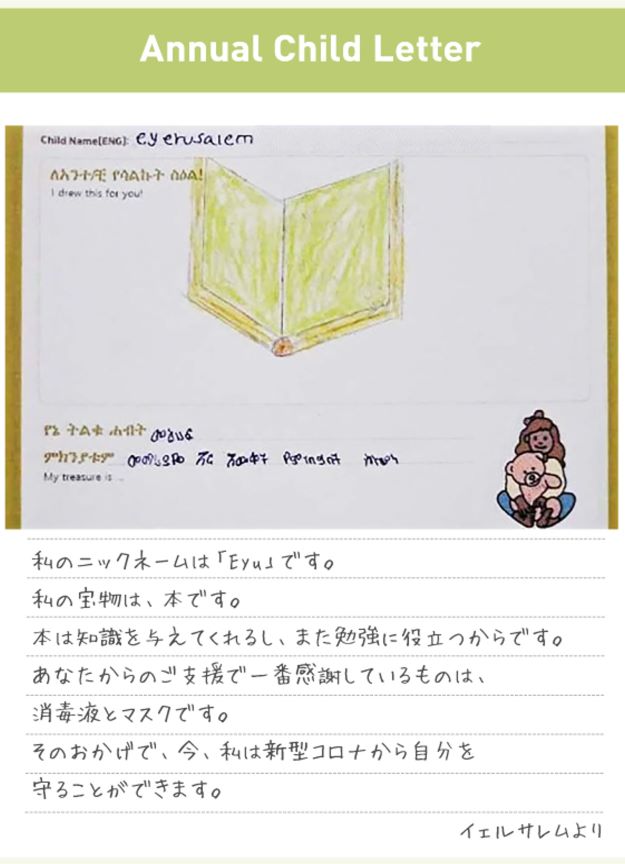 Annual Child Letter
Child Name[ENG]: eyerusalem
ለእንተ/ቺ የሳልኩት ስዕል!
I drew this for you!
የኔ ትልቁ ሐብት መፅሀፍ
ምክንያቱም እውቀት
My treasure is ...
私のニックネームは「Eyu」です。
私の宝物は、本です。
本は知識を与えてくれるし、また勉強に役立つからです。
あなたからのご支援で一番感謝しているものは、
消毒液とマスクです。
そのおかげで、今、私は新型コロナから自分を
守ることができます。
イェルサレムより